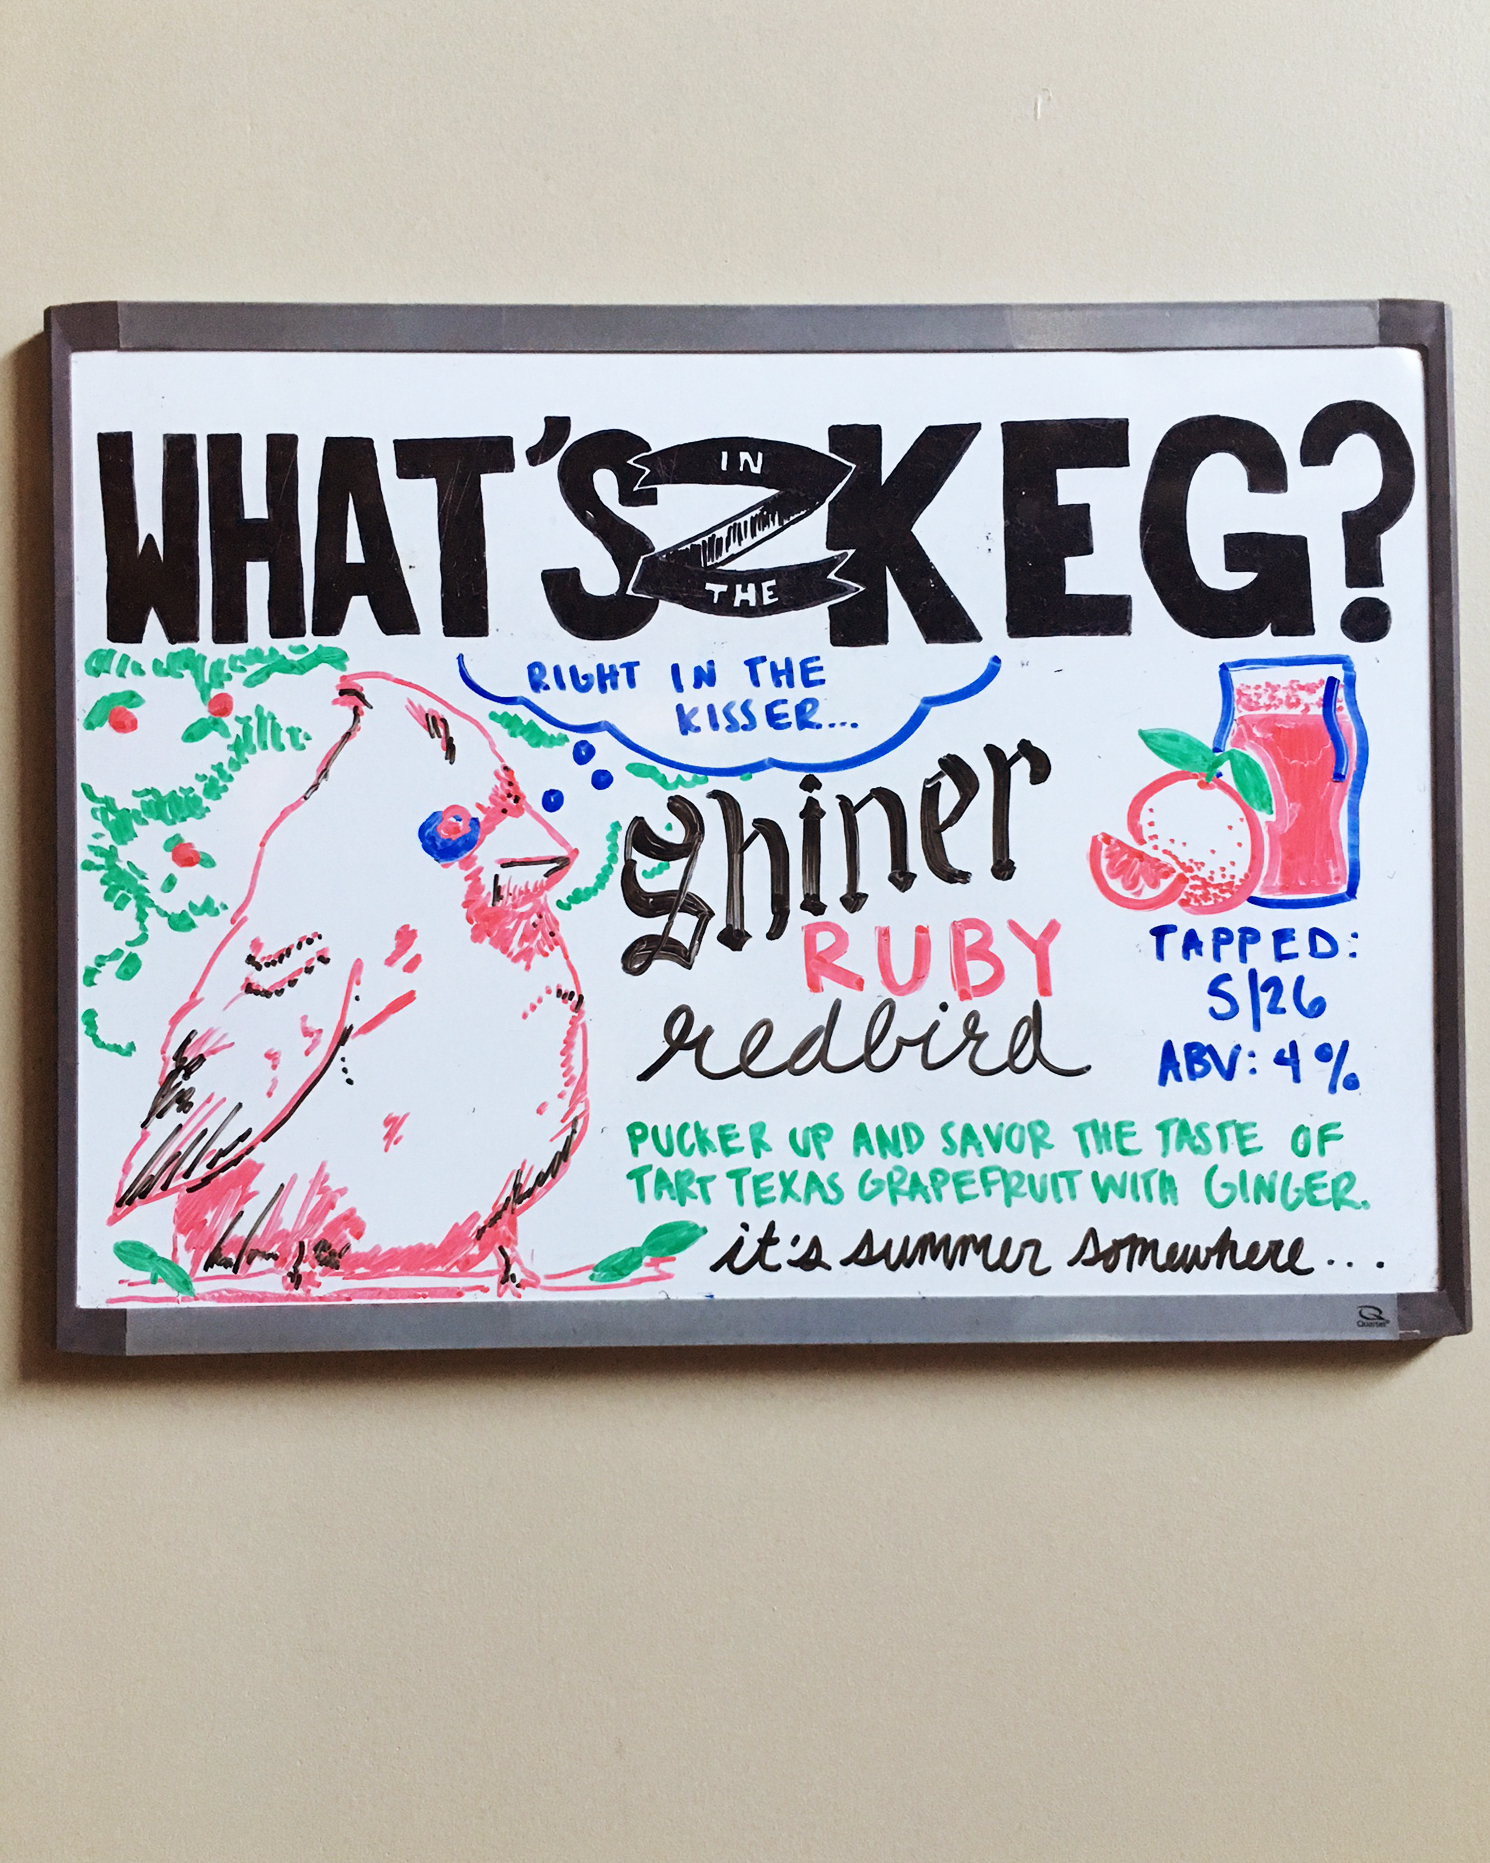 WHAT'S IN THE KEG?
RIGHT IN THE
KISSER...
Shiner
RUBY
redbird
TAPPED:
5/26
ABV: 4%
PUCKER UP AND SAVOR THE TASTE OF
TART TEXAS GRAPEFRUIT WITH GINGER.
it's summer somewhere...
Quartet